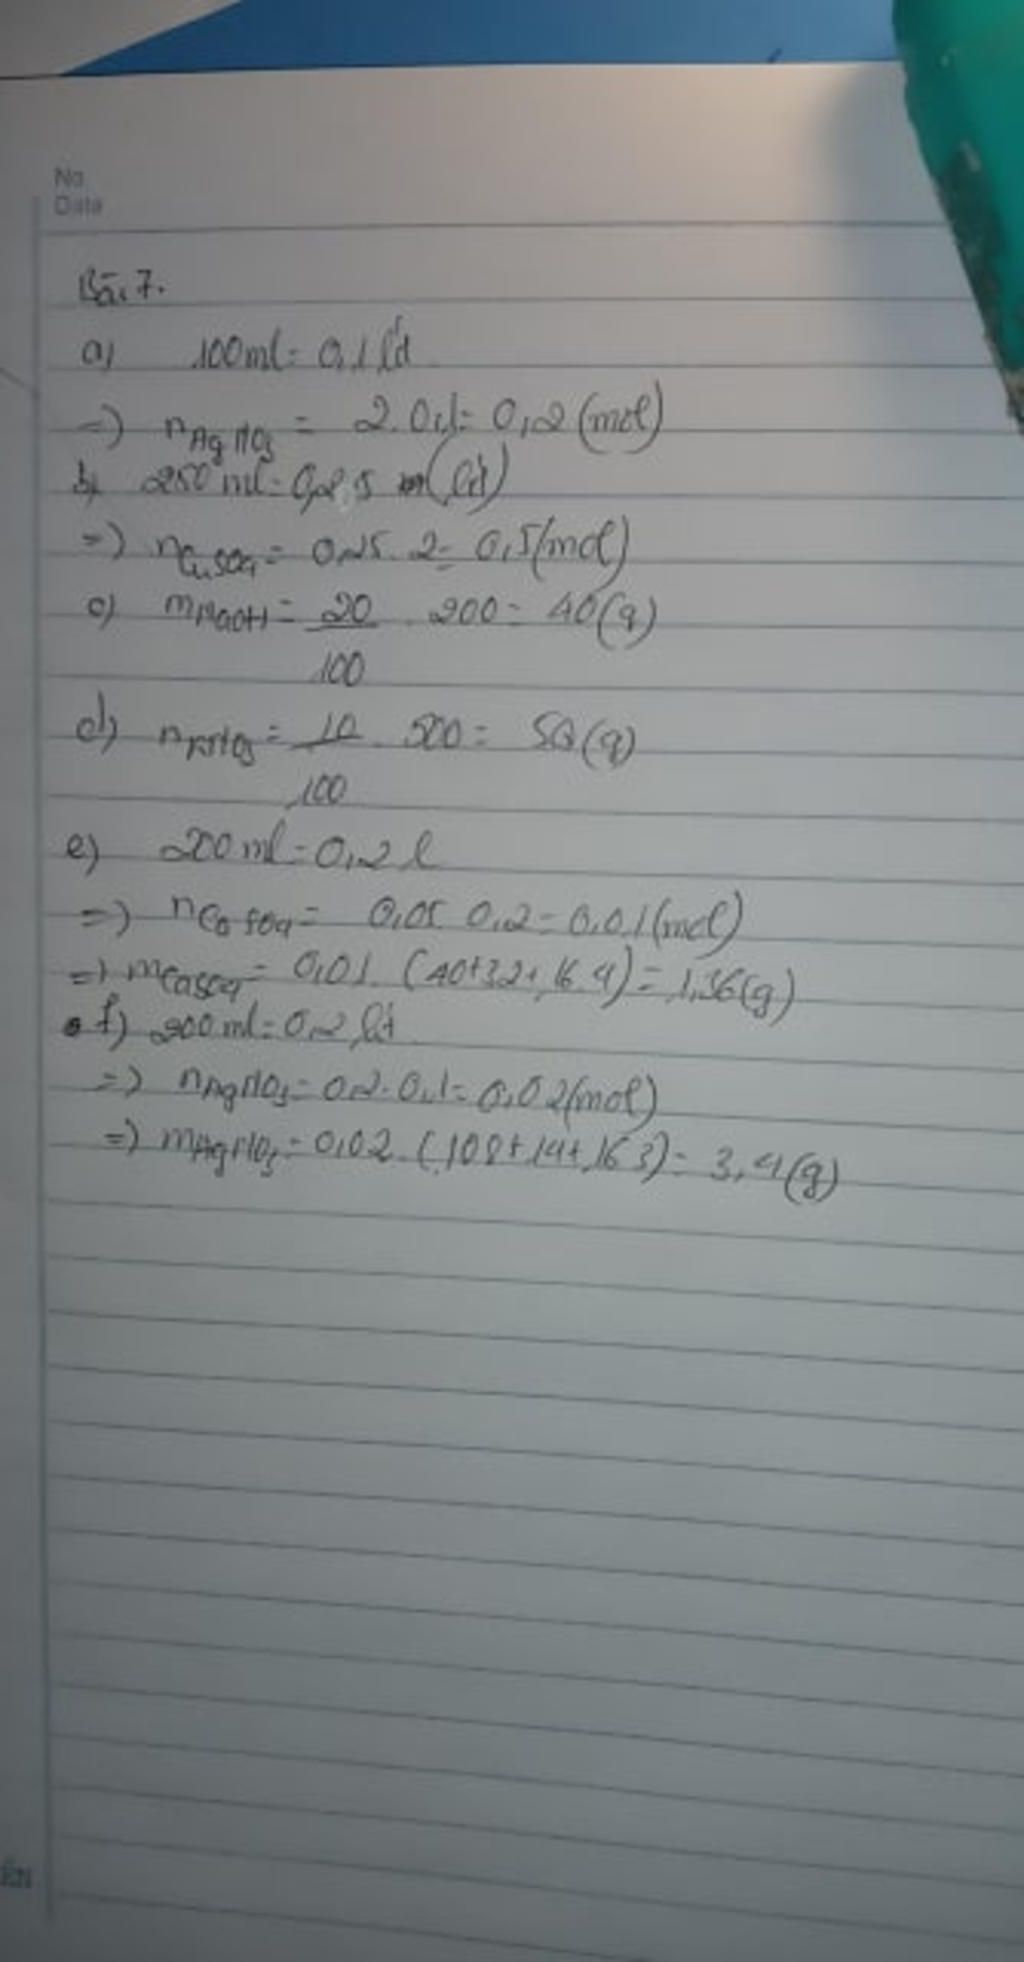 No
Date
Bài 7.
a) 100ml = 0,1 lít
=) nAgNO3 = 2. 0,1 = 0,2 (mol)
b) 250 ml = 0,25 (lít)
=) nCuSO4 = 0,25. 2 = 0,5 (mol)
c) mNaOH = 20 . 200 = 40 (g)
100
d) nKNO3 = 10 . 500 = 50 (g)
100
e) 200 ml = 0,2 l
=) nCaSO4 = 0,05 0,2 = 0,01 (mol)
=) mCaSO4 = 0,01. (40+32+16.4) = 1,36 (g)
f) 200 ml = 0,2 lít
=) nAgNO3 = 0,2. 0,1 = 0,02 (mol)
=) mAgNO3 = 0,02. (108+14+16 3) = 3,4 (g)